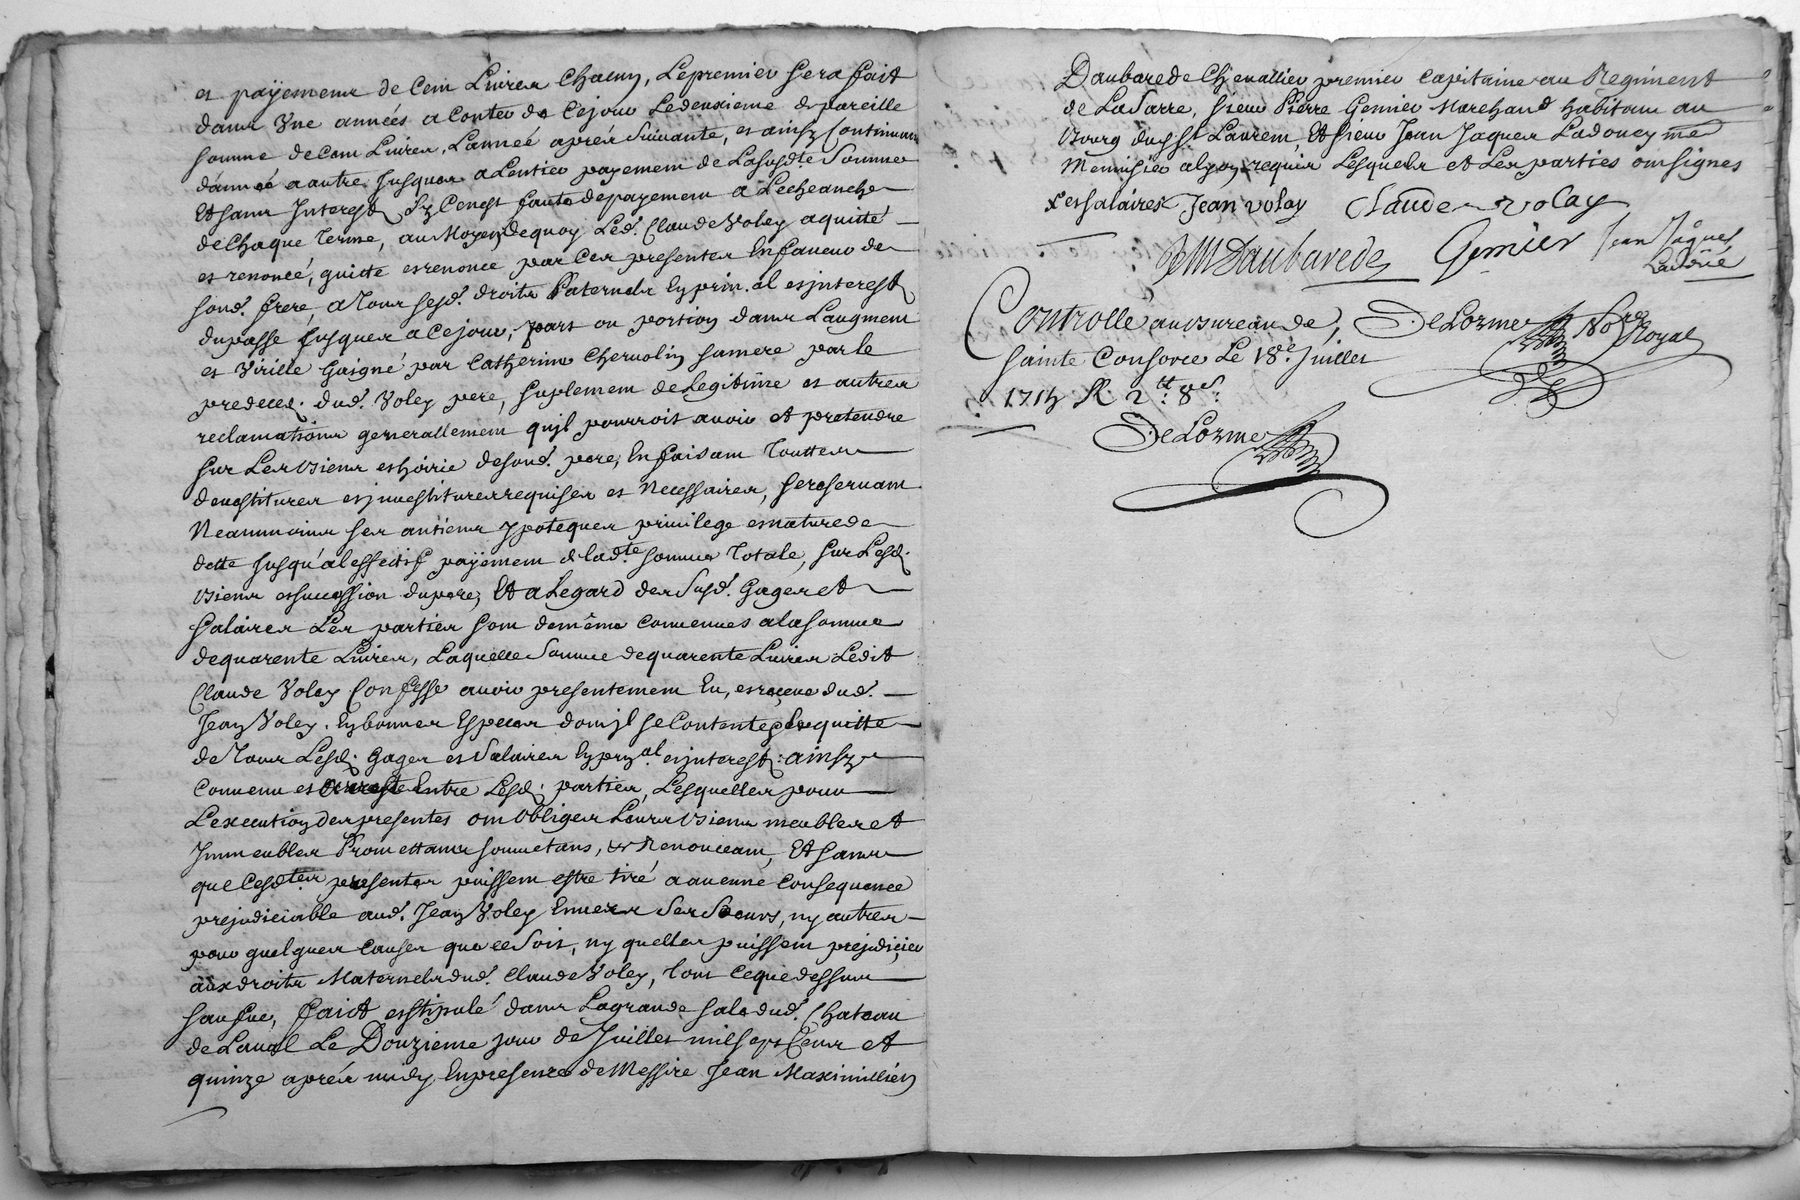 et payement de Cent Livres Chacun, Le premier sera fait
dans Une années a Conter de Cejour Ledeuxieme de pareille
somme de Cent Livres, L'anneé aprés Suivante, et ainsy Continuant
d'année a autre Jusques a Lentier payement de Lasusdte Somme
Et sans Interest sy Cenest faute depayement a Lecheanche
de Chaque Terme, au Moyen Dequoy Led. Claude Voley a quitté
et renoncé, quitte et renonce par Ces presentes En faveur de
sond. frere, a Tous sesd. droits Paternels En prin.al et interest
dupassé Jusques a Cejour, part ou portion dans Laugment
et Virille Gaigné par Catherine Chervolin sa mere par le
predeces. dud. Voley pere, suplement de Legitime et autres
reclamations generallement qu'jl pourroit avoir et pretendre
sur Les biens et hoirie de sond. pere, En faisant Touttes
devestitures et jnvestitures requises et Necessaires, se reservant
Neanmoins ses antiens ypoteques privilege et nature de
dette Jusqu'al effectif payement de ladte somme Totale, sur Lesd.
biens et succession du pere, Et a Legard des Susd. Gages et
salaires Les parties sont demême Convenues a la somme
de quarente Livres, Laquelle Somme de quarente Livres Ledit
Claude Voley Confesse avoir presentement Eu, et reçeue dud.
Jean Voley. En bonnes Especes dont jl se Contente et Le quitte
de Tous Lesd. Gages et Salaires En prin.al et interest: ainsy
Convenu et arresté Entre Lesd. parties, Lesquelles pour
L'execution des presentes ont Obliger Leurs biens meubles et
Immeubles Promettants soumetans, et Renonceant, Et sans
que Cesdtes presentes puissent estre tiré a aucune Consequence
prejudiciable aud. Jean Voley Envers Ses Soeurs, ny autres
pour quelques Causes que ce Soit, ny quelles puissent prejudicier
aux droits Maternels dud. Claude Voley, Tout Ceque dessus
sauf que, faict et stipulé dans La grande sale dud. Chateau
de Laval Le Douzieme jour de Juillet mil sept Cens et
quinze aprés midy En presence de Messire Jean Maximillien
Daubarede Chevallier premier Capitaine au Regiment
de La Sarre, sieur Pierre Gernier Marchand habitant au
Bourg dud St. Laurent, Et sieur Jean Jaques Ladoucy me
Menuisier aLyon, requis Lesquels et Les parties ont signes
x et salaires Jean voley Claude voley
JM Daubarede Gernier Jean Jâques
Ladoué
Controllé au bureau de, DeLorme Nore
Sainte Consorce Le 18e. Juillet Royal
1715 R 2tt: 8s:
DeLorme